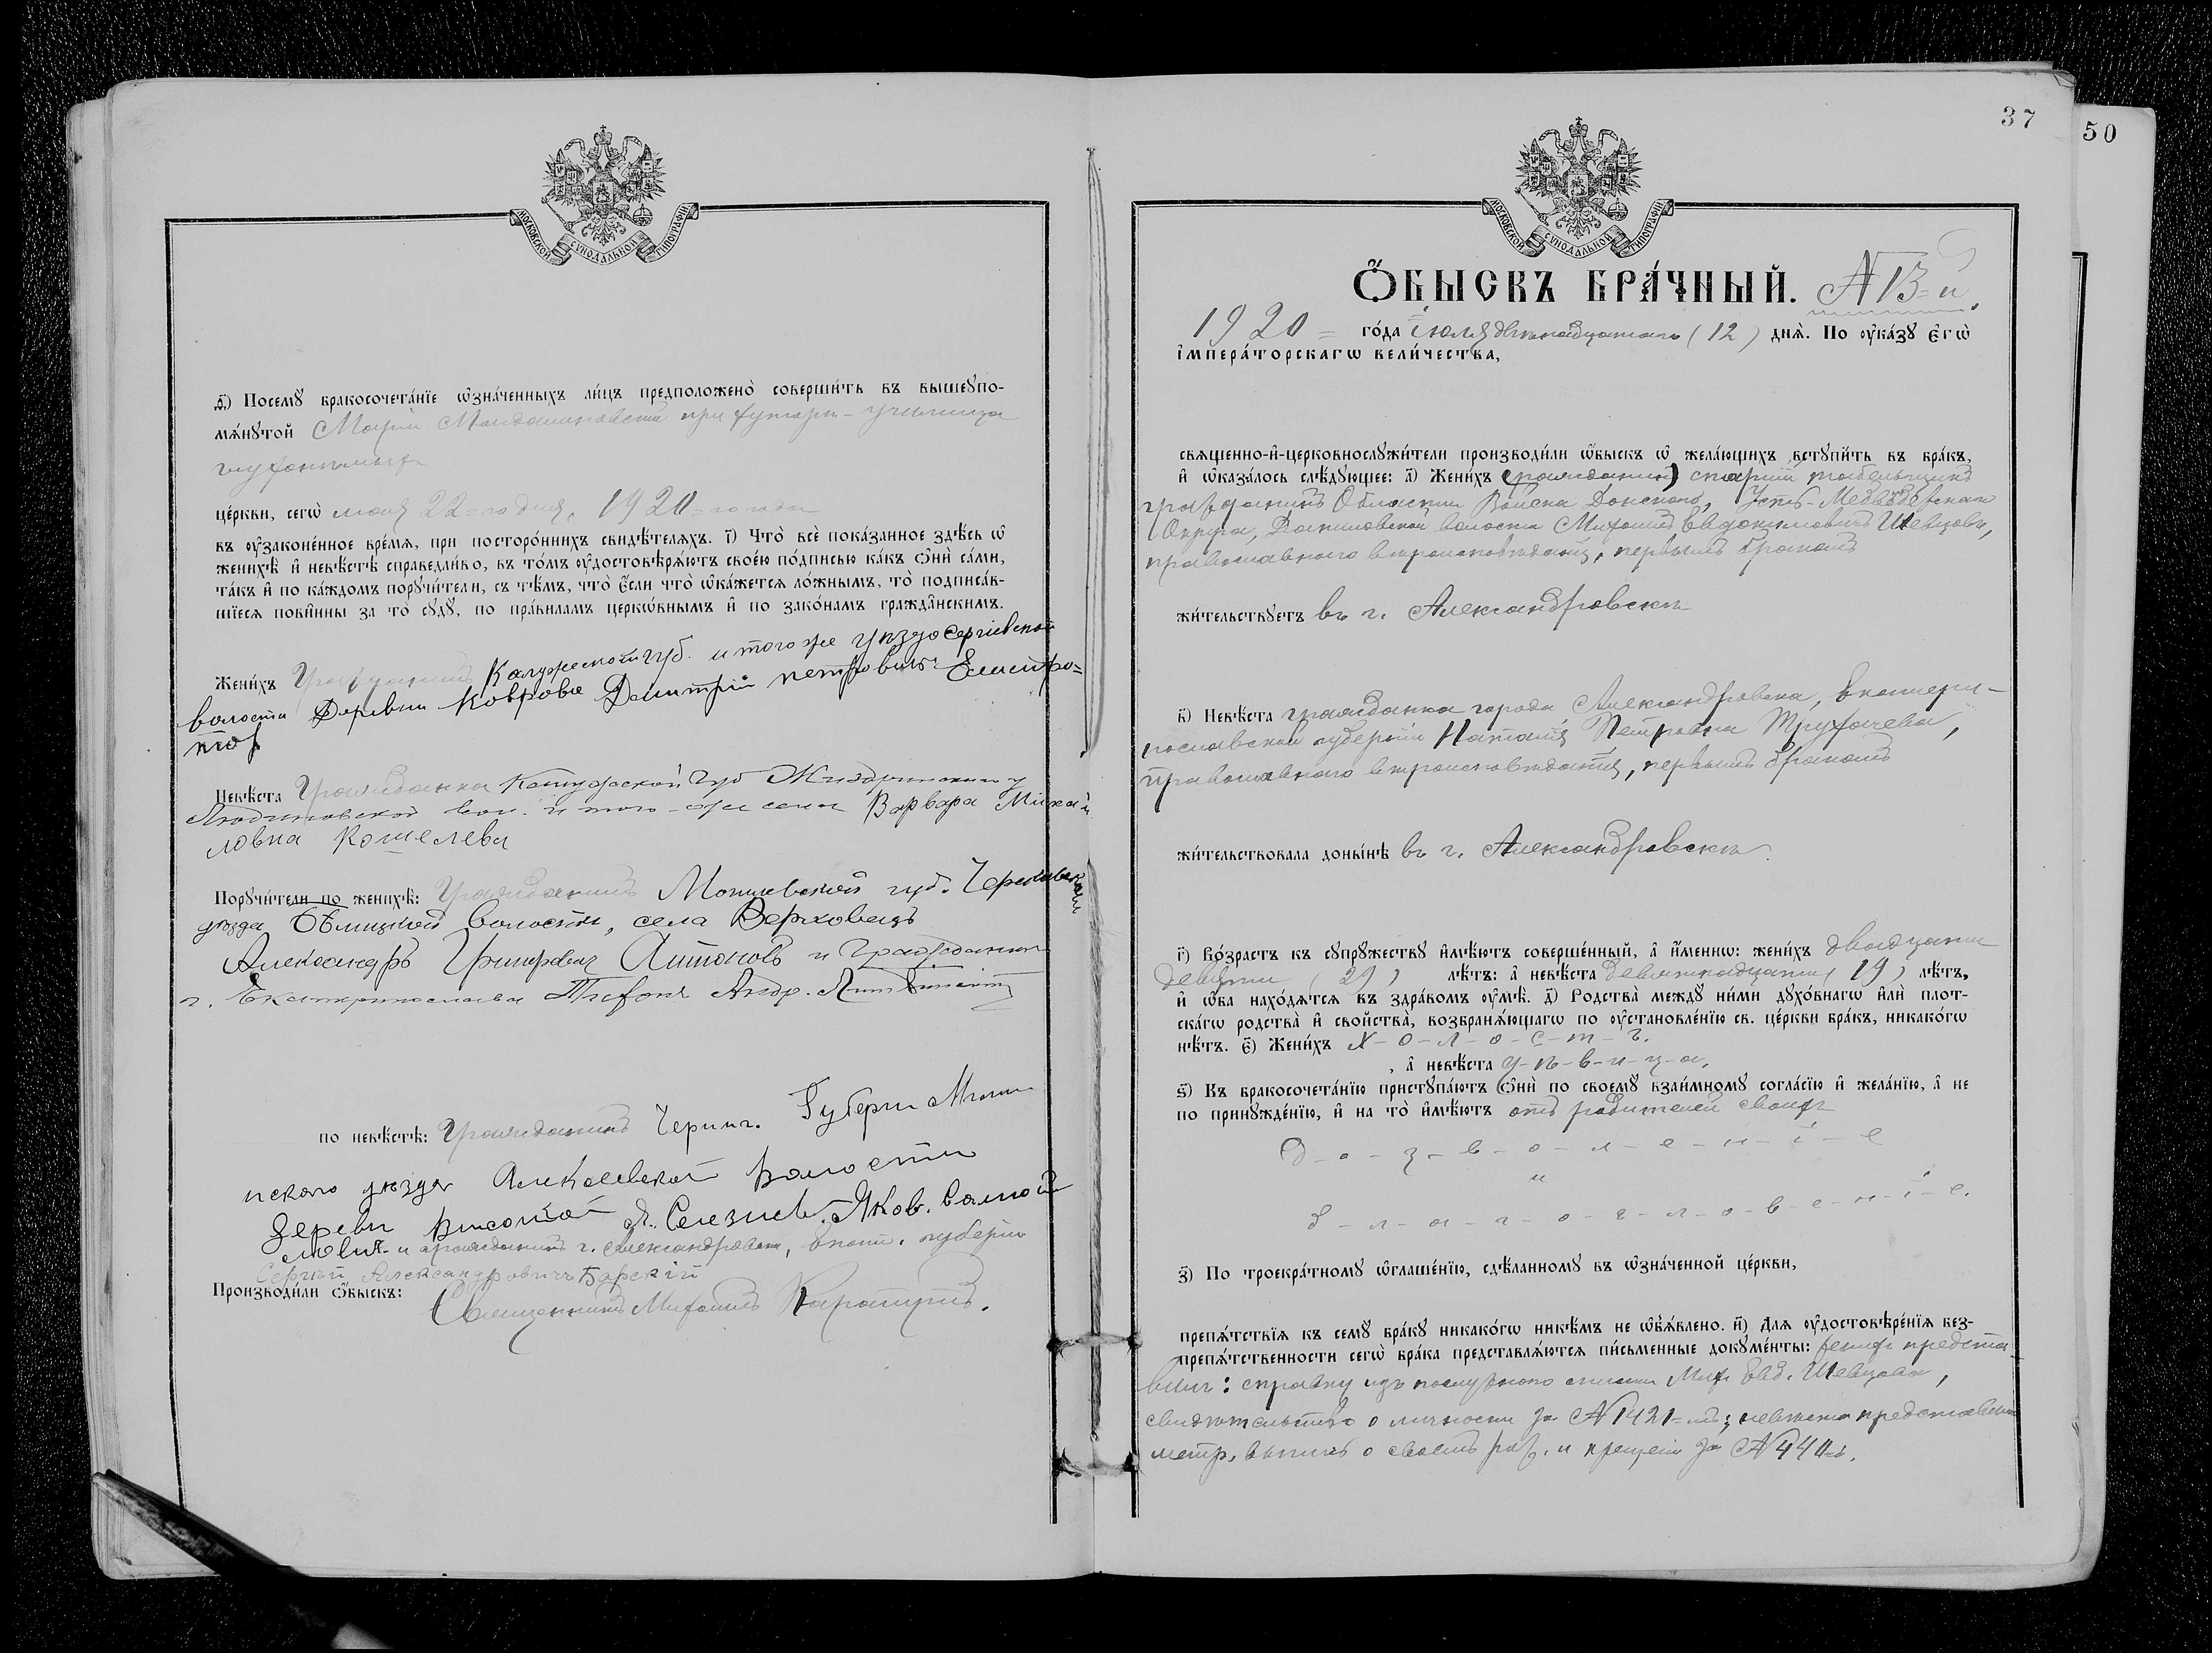 МОСКОВСКОЙ СѴНОДАЛЬНОЙ ТИПОГРАФІИ
ѳ҃) Посемꙋ бракосочета́нїе ѡ҆зна́ченныхъ ли́цъ предположено̀ соверши́ть въ вышеꙋпо-
мѧ́нꙋтой Маріе при хуторѣ - училища
глухонѣмыхъ
це́ркви, сегѡ̀ мая 22=го дня, 1920=го года
въ ᲂу҆законе́нное вре́мѧ, при посторо́ннихъ свидѣ́телѧхъ. і҃) Что̀ всѐ пока́занное здѣ́сь ѡ҆
женихѣ̀ и҆ невѣ́стѣ справедли́во, въ то́мъ ᲂу҆достовѣрѧ́ютъ свое́ю по́дписью ка́къ ѻ҆нѝ са́ми,
та́къ и҆ по ка́ждомъ порꙋчи́тели, съ тѣ́мъ, что̀ є҆́сли что̀ ѡ҆ка́жетсѧ ло́жнымъ, то̀ подписа́в-
шїесѧ пови́нны за то̀ сꙋдꙋ̀, по пра́виламъ церко́внымъ и҆ по зако́намъ гражда́нскимъ.
Жени́хъ Гражданинъ Калужской губ. и того же уѣзда Сергіевской
волости Деревни Коврова Димитрій петровичъ
Невѣ́ста Гражданка Калужской Губ Жиздринскаго у
Людиновской вол. и того-же села Варвара Михай
ловна Кошелева
Порꙋчи́тели по женихѣ̀: Гражданинъ Могилевской губ. Чериковскаго
уѣзда волости, села Верховецъ
Александръ Григорьевич Антоновъ и Гражданин
г. Екатеринослава Тихонъ Андр.
по невѣ́стѣ: Гражданинъ Черниг. Губерни Мглин
искаго уѣзда Алексѣевской Волости
деревн Высокой Селезнев. Яков. Самой
лович и гражданинъ г. Александровска, Екат. губерніи
Сергѣй Александровичъ Барскій
Производи́ли ѻ҆́быскъ: Священникъ Михаилъ
37
50
МОСКОВСКОЙ СѴНОДАЛЬНОЙ ТИПОГРАФІИ
Ѻ҆́БЫСКЪ БРА́ЧНЫЙ. № 13=й.
1920= го́да іюля двѣнадцатаго (12) днѧ̀. По ᲂу҆ка́зꙋ є҆гѡ̀
і҆мпера́торскагѡ вели́чества,
свѧще́нно-и҆-церковнослꙋжи́тели производи́ли ѻ҆́быскъ ѡ҆ жела́ющихъ встꙋпи́ть въ бра́къ,
и҆ ѡ҆каза́лось слѣ́дꙋющее: а҃) Жени́хъ (гражданинъ) старшій табельщикъ
гражданинъ Области Войска Донского, Усть-Медвѣдевскаго
Округа, Даниловской волости Михаилъ Евдокимовичъ Шевцовъ,
православнаго вѣроисповѣданія, первымъ бракомъ
жи́тельствꙋетъ въ г. Александровскѣ
в҃) Невѣ́ста гражданка города Александровска, Екатери-
нославской губерніи Наталія Петровна Трухачева,
православнаго вѣроисповѣданія, первымъ бракомъ
жи́тельствовала доны́нѣ въ г. Александровскѣ.
г҃) Во́зрастъ къ сꙋпрꙋ́жествꙋ и҆мѣ́ютъ соверше́нный, а҆ и҆́меннѡ: жени́хъ двадцати
девяти (29) лѣ́тъ: а҆ невѣ́ста девятнадцати (19) лѣ́тъ,
и҆ ѻ҆́ба нахо́дѧтсѧ въ здра́вомъ ᲂу҆мѣ̀. д҃) Родства̀ междꙋ ни́ми дꙋхо́внагѡ и҆лѝ плот-
ска́гѡ родства̀ и҆ свойства̀, возбранѧ́ющагѡ по ᲂу҆становле́нїю св. це́ркви бра́къ, никако́гѡ
нѣ́тъ. є҃) Жени́хъ х-о-л-о-с-т-ъ.
, а҆ невѣ́ста д-ѣ-в-и-ц-а.
ѕ҃) Къ бракосочета́нїю пристꙋпа́ютъ ѻ҆нѝ по своемꙋ̀ взаи́мномꙋ согла́сїю и҆ жела́нїю, а҆ не
по принꙋжде́нїю, и҆ на то̀ и҆мѣ́ютъ отъ родителей своихъ
д-о-з-в-о-л-е-н-і-е
и
б-л-а-г-о-с-л-о-в-е-н-і-е.
з҃) По троекра́тномꙋ ѡ҆глаше́нїю, сдѣ́ланномꙋ въ ѡ҆зна́ченной це́ркви,
препѧ́тствїѧ къ семꙋ̀ бра́кꙋ никако́гѡ никѣ́мъ не ѡ҆б̾ѧ́влено. и҃) Для ᲂу҆достовѣре́нїѧ без-
препѧ́тственности сегѡ̀ бра́ка представлѧ́ютсѧ пи́сьменные докꙋме́нты: женихъ предста-
вилъ: справку изъ послужного списка Мих. Евд. Шевцова,
свидѣтельство о личности за № 1421=мъ; невѣста представила
метр. выпись о своемъ рожд. и крещеніи за № 440.